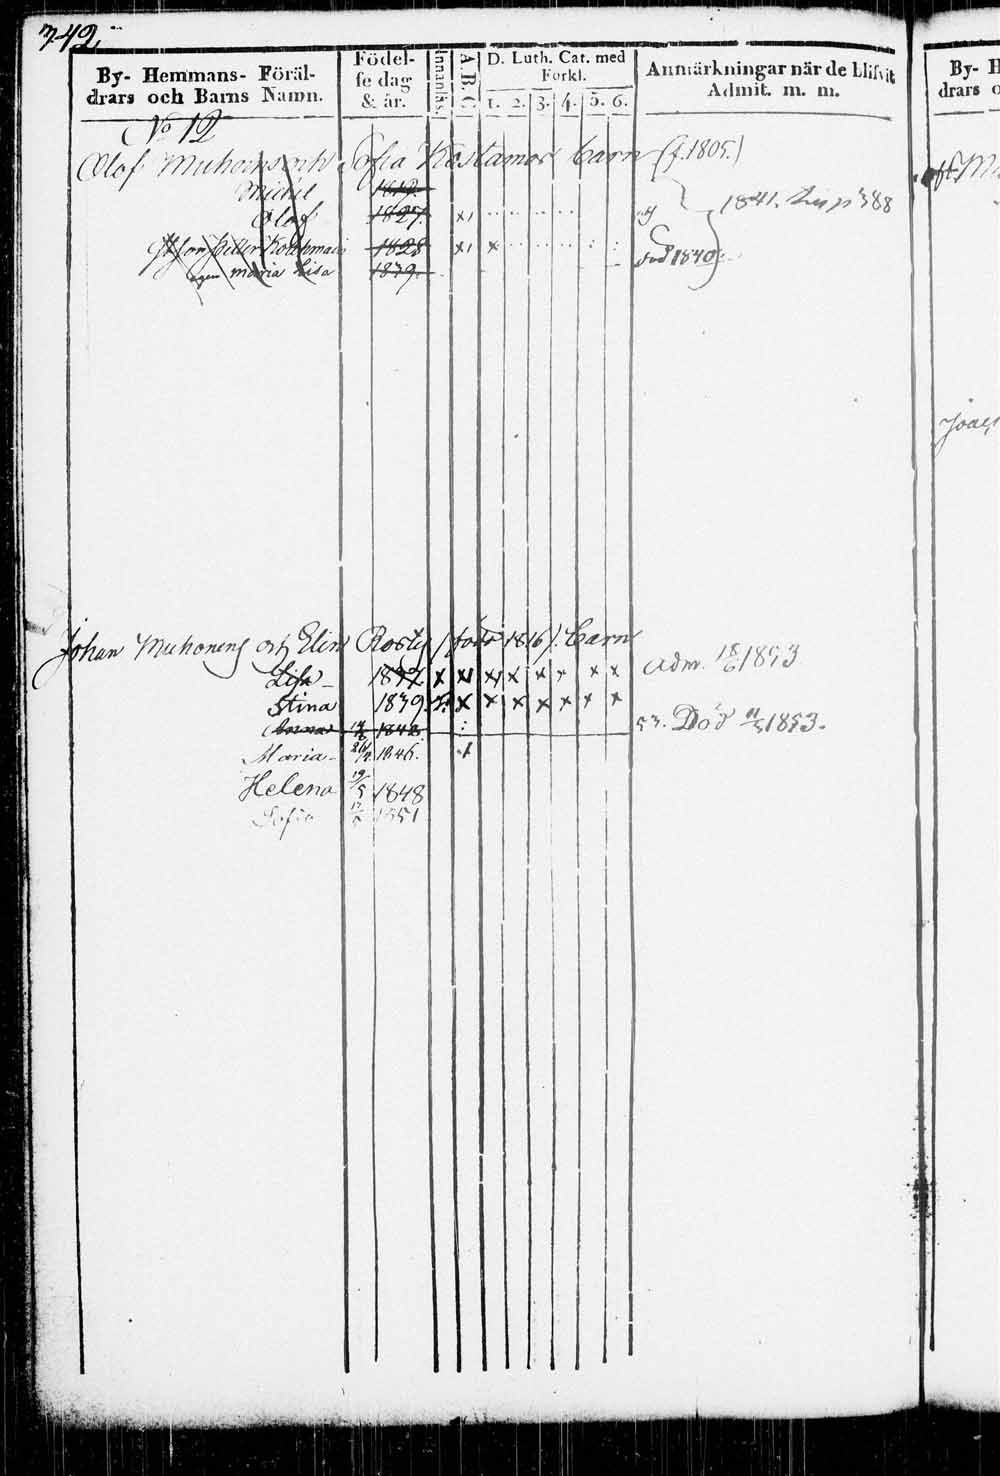 342.
By- Hemmans- Föräl-
drars och Barns Namn.
Födel-
se dag
& år.
Innanläs.
A. B. C.
D. Luth. Cat. med
Forkl.
1. 2. 3. 4. 5. 6.
Anmärkningar när de blifvit
Admit. m. m.
No 12
Olof Muhoins och Sofia Kostamos barn (f. 1805.)
Michel
1841. p 388
Olof 1827. x
Petter 1828 x x död 1840
Maria Lisa 1839.
Johan Muhonens och Elin (född 1816). barn
Lisa 1837 x x x x x x x x adm. 18/6 1853
Stina 1839. x x x x x x x x
Anna 1842. 53. Död 1853.
Maria 1846. x
Helena 19/5 1848
Sofia 1851
By- H
drars o